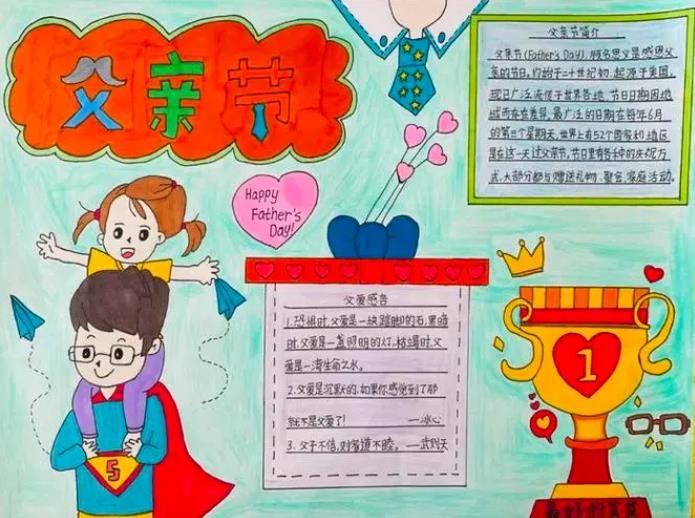 父亲节
父亲节简介
父亲节(Father's Day),顾名思义是感恩父
亲的节日。约始于二十世纪初,起源于美国,
现已广泛流传于世界各地,节日日期因地
域而存在差异。最广泛的日期在每年6月
的第三个星期天,世界上有52个国家和地区
是在这一天过父亲节。节日里有各种的庆祝方
式,大部分都与赠送礼物、聚会、家庭活动。
Happy
Father's
Day!
父爱感言
1.恐惧时,父爱是一块踏脚的石,黑暗
时,父爱是一盏照明的灯,枯竭时,父
爱是一湾生命之水。
2.父爱是沉默的,如果你感觉到了那
就不是父爱了! —冰心
3.父子不信,则家道不睦。—武则天
1
5
最好的爸爸